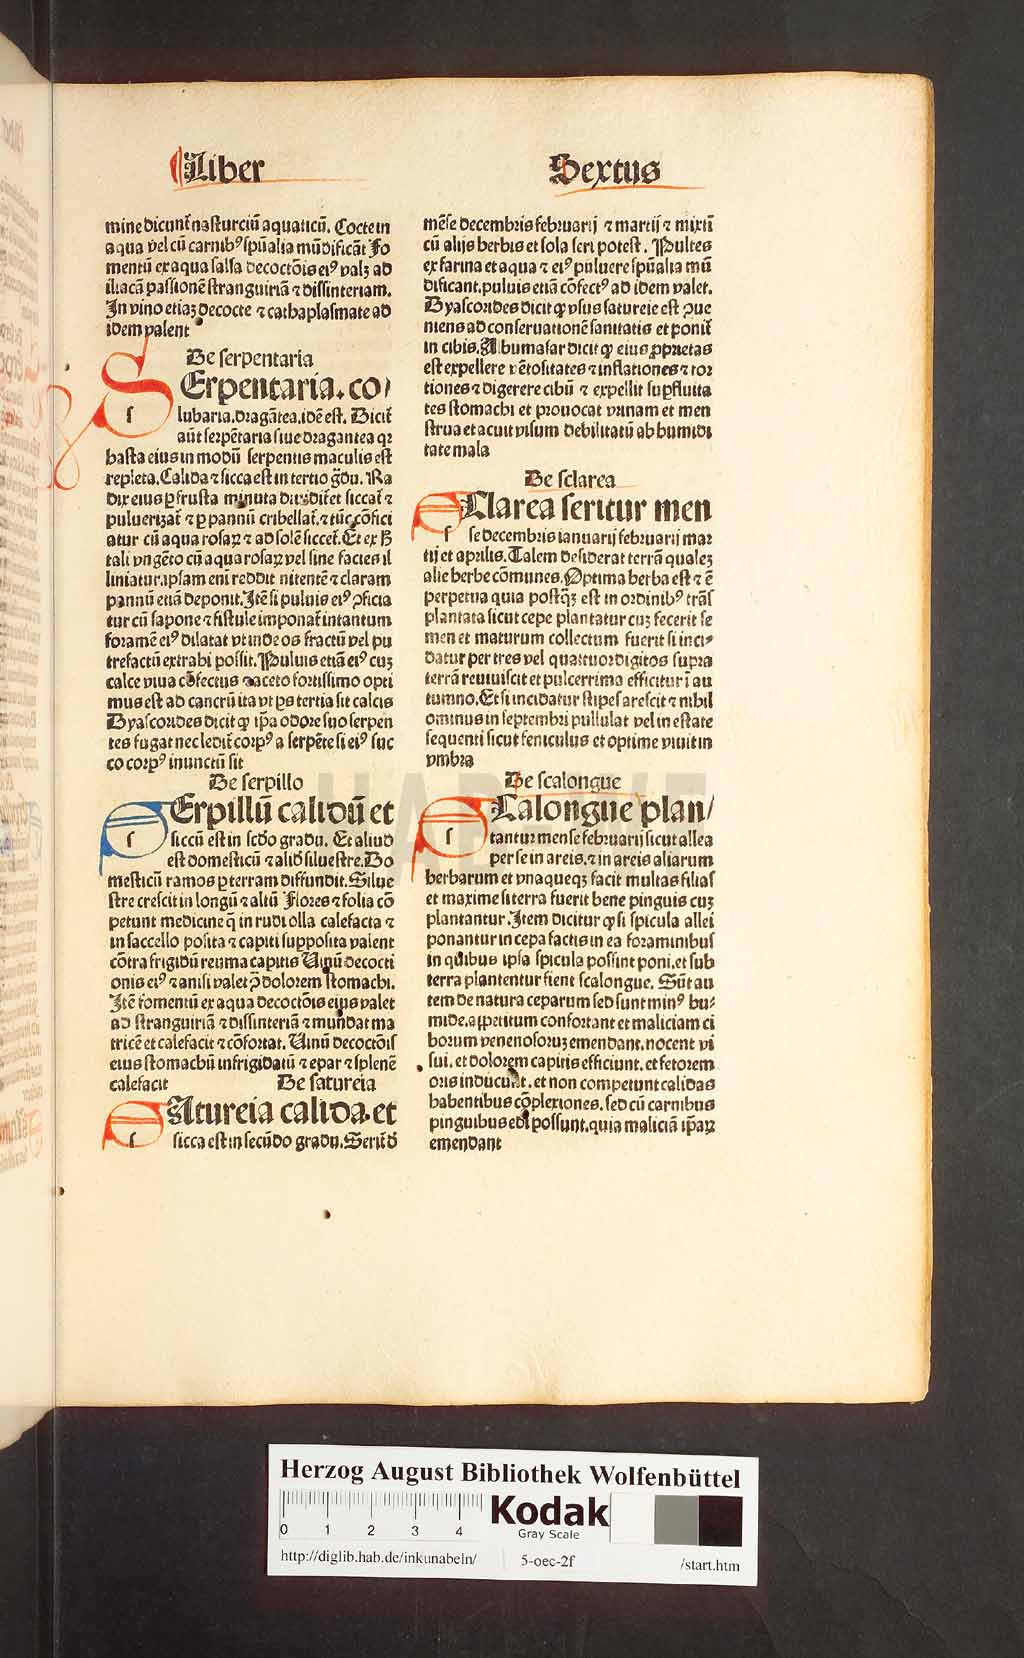 Liber Sextus
mine dicunt᷑ nasturciū aquaticū. Cocte in
aqua vel cū carnibꝰ spūalia mūdificāt Fo
mentū ex aqua salsa decoctōis eiꝰ valꝫ ad
iliacā passionē stranguiriā ⁊ dissinteriam.
In vino etiaꝫ decocte ⁊ cathaplasmate ad
idem valent
De serpentaria
SErpentaria. co/
lubaria. dragātea. idē est. Dicit᷑
aūt serpētaria siue dragantea qꝛ
hasta eius in modū serpentis maculis est
repleta. Calida ⁊ sicca est in tertio g̃du. Ra
dix eius ꝑ frusta minuta diuidit᷑ et siccat᷑ ⁊
puluerizat᷑ ⁊ ꝑ pannū cribellat᷑. ⁊ tūc cōfici
atur cū aqua rosaꝝ ⁊ ad solē siccet᷑. Et ex
tali vngēto cū aqua rosaꝝ vel sine facies il
liniatur. ipsam eni reddit nitentē ⁊ claram
pannū etiā deponit. Itē si puluis eiꝰ ꝯficia
tur cū sapone ⁊ fistule imponat᷑ intantum
foramē eiꝰ dilatat vt inde os fractū vel pu
trefactū extrahi possit. Puluis etiā eiꝰ cuꝫ
calce viua cōfectus ⁊ aceto fortissimo opti
mus est ad cancrū ita vt ps tertia sit calcis
Dyascorides dicit ꝙ ip̄a odore suo serpen
tes fugat nec ledit᷑ corpꝰ a serpēte si eiꝰ suc
co corpꝰ inunctū sit
De serpillo
SErpillū calidū et
siccū est in scdo gradu. Et aliud
est domesticū ⁊ aliđ siluestre. Do
mesticū ramos ꝑ terram diffundit. Silue
stre crescit in longū ⁊ altū Flores ⁊ folia cō
petunt medicine q̄ in rudi olla calefacta ⁊
in saccello posita ⁊ capiti supposita valent
cōtra frigidū reuma capitis Uinū decocti
onis eiꝰ ⁊ anisi valet ꝯ̄ dolorem stomachi.
Itē fomentū ex aqua decoctōis eius valet
ad stranguiriā ⁊ dissinteriā ⁊ mundat ma
tricē et calefacit ⁊ cōfortat. Uinū decoctōis
eius stomachū infrigidatū ⁊ epar ⁊ splenē
calefacit De satureia
SAtureia calida. et
sicca est in secūdo gradu. Serit᷑ đ
mēse decembris februarij ⁊ martij ⁊ mixtī
cū alijs herbis et sola seri potest. Pultes
ex farina et aqua ⁊ eiꝰ puluere spūalia mū
dificant. puluis etiā cōfectꝰ ad idem valet.
Dyascorides dicit ꝙ vsus satureie est ꝯue
niens ad conseruationē sanitatis et ponit᷑
in cibis. Albumasar dicit ꝙ eius ꝓprietas
est expellere vētositates ⁊ inflationes ⁊ tor
tiones ⁊ digerere cibū ⁊ expellit suꝑfluita
tes stomachi et prouocat vrinam et men
strua et acuit visum debilitatū ab humidi
tate mala
De sclarea
SClarea seritur men
se decembris ianuarij februarij mar
tij et aprilis. Talem desiderat terrā qualeꝫ
alie herbe cōmunes. Optima herba est ⁊ ē
perpetua quia postq̄ꝫ est in ordinibꝰ trās
plantata sicut cepe plantatur cuꝫ fecerit se
men et maturum collectum fuerit si inci-
datur per tres vel quattuor digitos supra
terrā reuiuiscit et pulcerrima efficitur ī au
tumno. Et si incidatur stipes arescit ⁊ nihil
ominus in septembri pullulat vel in estate
sequenti sicut feniculus et optime viuit in
vmbra
De scalongue
SCalongue plan/
tantur mense februarij sicut allea
per se in areis. ⁊ in areis aliarum
herbarum et vnaqueqꝫ facit multas filias
et maxime si terra fuerit bene pinguis cuꝫ
plantantur. Item dicitur ꝙ si spicula allei
ponantur in cepa factis in ea foraminibus
in quibus ipsa spicula possint poni. et sub
terra plantentur fient scalongue. Sūt au
tem de natura ceparum sed sunt minꝰ hu-
mide. appetitum confortant et maliciam ci
borum venenosoruꝫ emendant. nocent vi
sui. et dolorem capitis efficiunt. et fetorem
oris inducunt. et non competunt calidas
habentibus cōplexiones. sed cū carnibus
pinguibus edi possunt. quia maliciā ip̄aꝝ
emendant
Herzog August Bibliothek Wolfenbüttel
0 1 2 3 4
Kodak
Gray Scale
http://diglib.hab.de/inkunabeln/ 5-oec-2f /start.htm